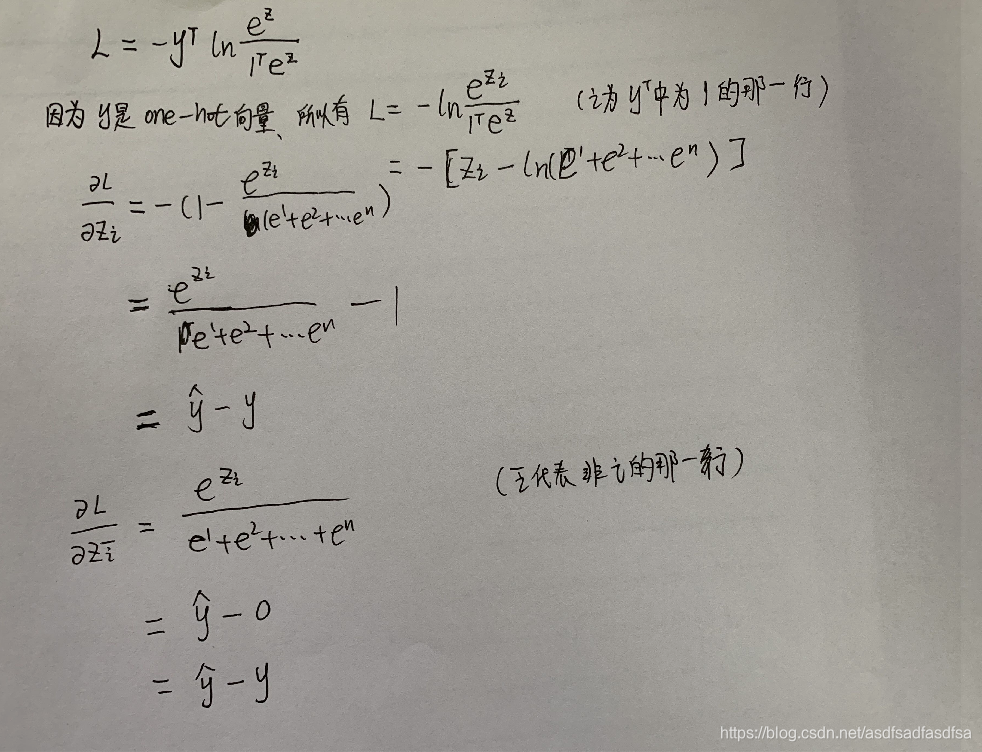 L = -yᵀ ln e^z / 1ᵀe^z
因为 y是 one-hot向量、所以有 L = -ln e^{z_i} / 1ᵀe^z (i为 yᵀ中为 1 的那一行)
= -[z_i - ln(e^1+e^2+…e^n)]
∂L/∂z_i = -(1 - e^{z_i} / (e^1+e^2+…e^n))
= e^{z_i} / e^1+e^2+…e^n - 1
= ŷ - y
∂L/∂z_ī = e^{z_i} / e^1+e^2+…+e^n (ī代表 非i的那一行)
= ŷ - 0
= ŷ - y
https://blog.csdn.net/asdfsadfasdfsa